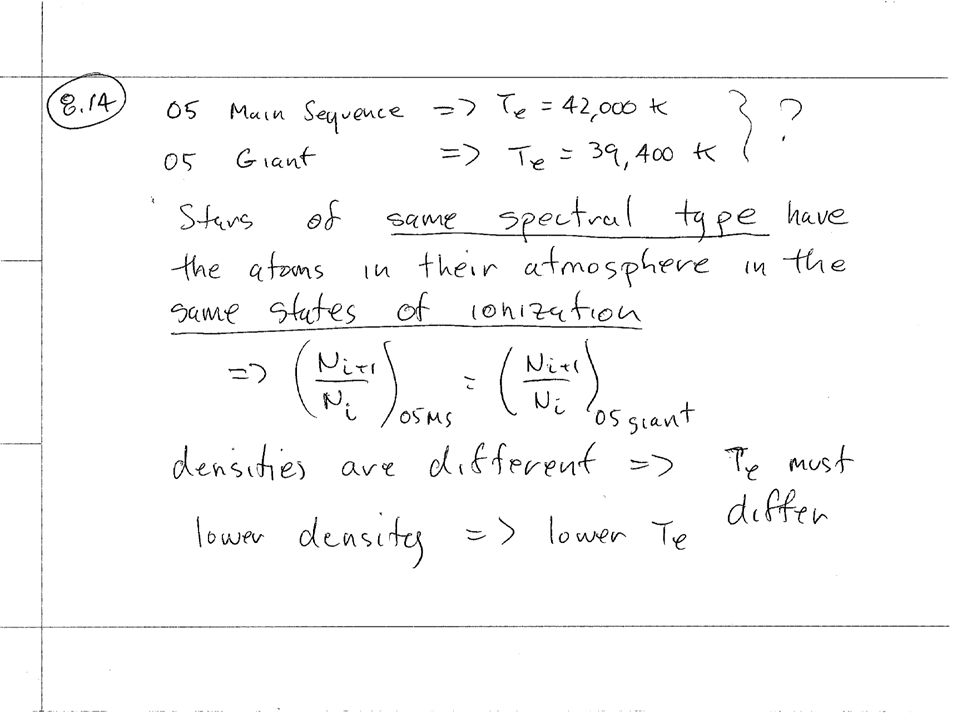 8.14
O5 Main Sequence => Te = 42,000 K } ?
O5 Giant => Te = 39,400 K
Stars of same spectral type have
the atoms in their atmosphere in the
same states of ionization
=> (Ni+1/Ni)O5 MS = (Ni+1/Ni)O5 giant
densities are different => Te must
differ
lower density => lower Te